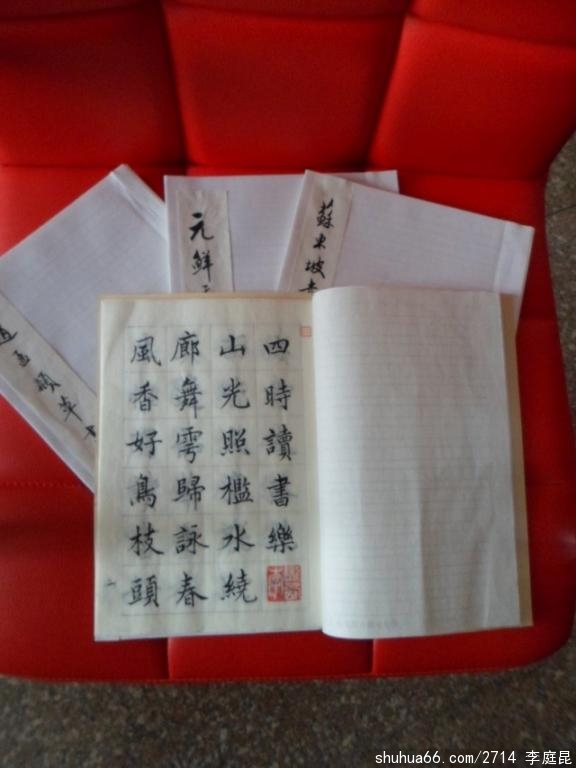 蘇東坡
元鮮
四時讀書樂
山光照檻水繞
廊舞雩歸詠春
風香好鳥枝頭
shuhua66.com/2714 李庭昆